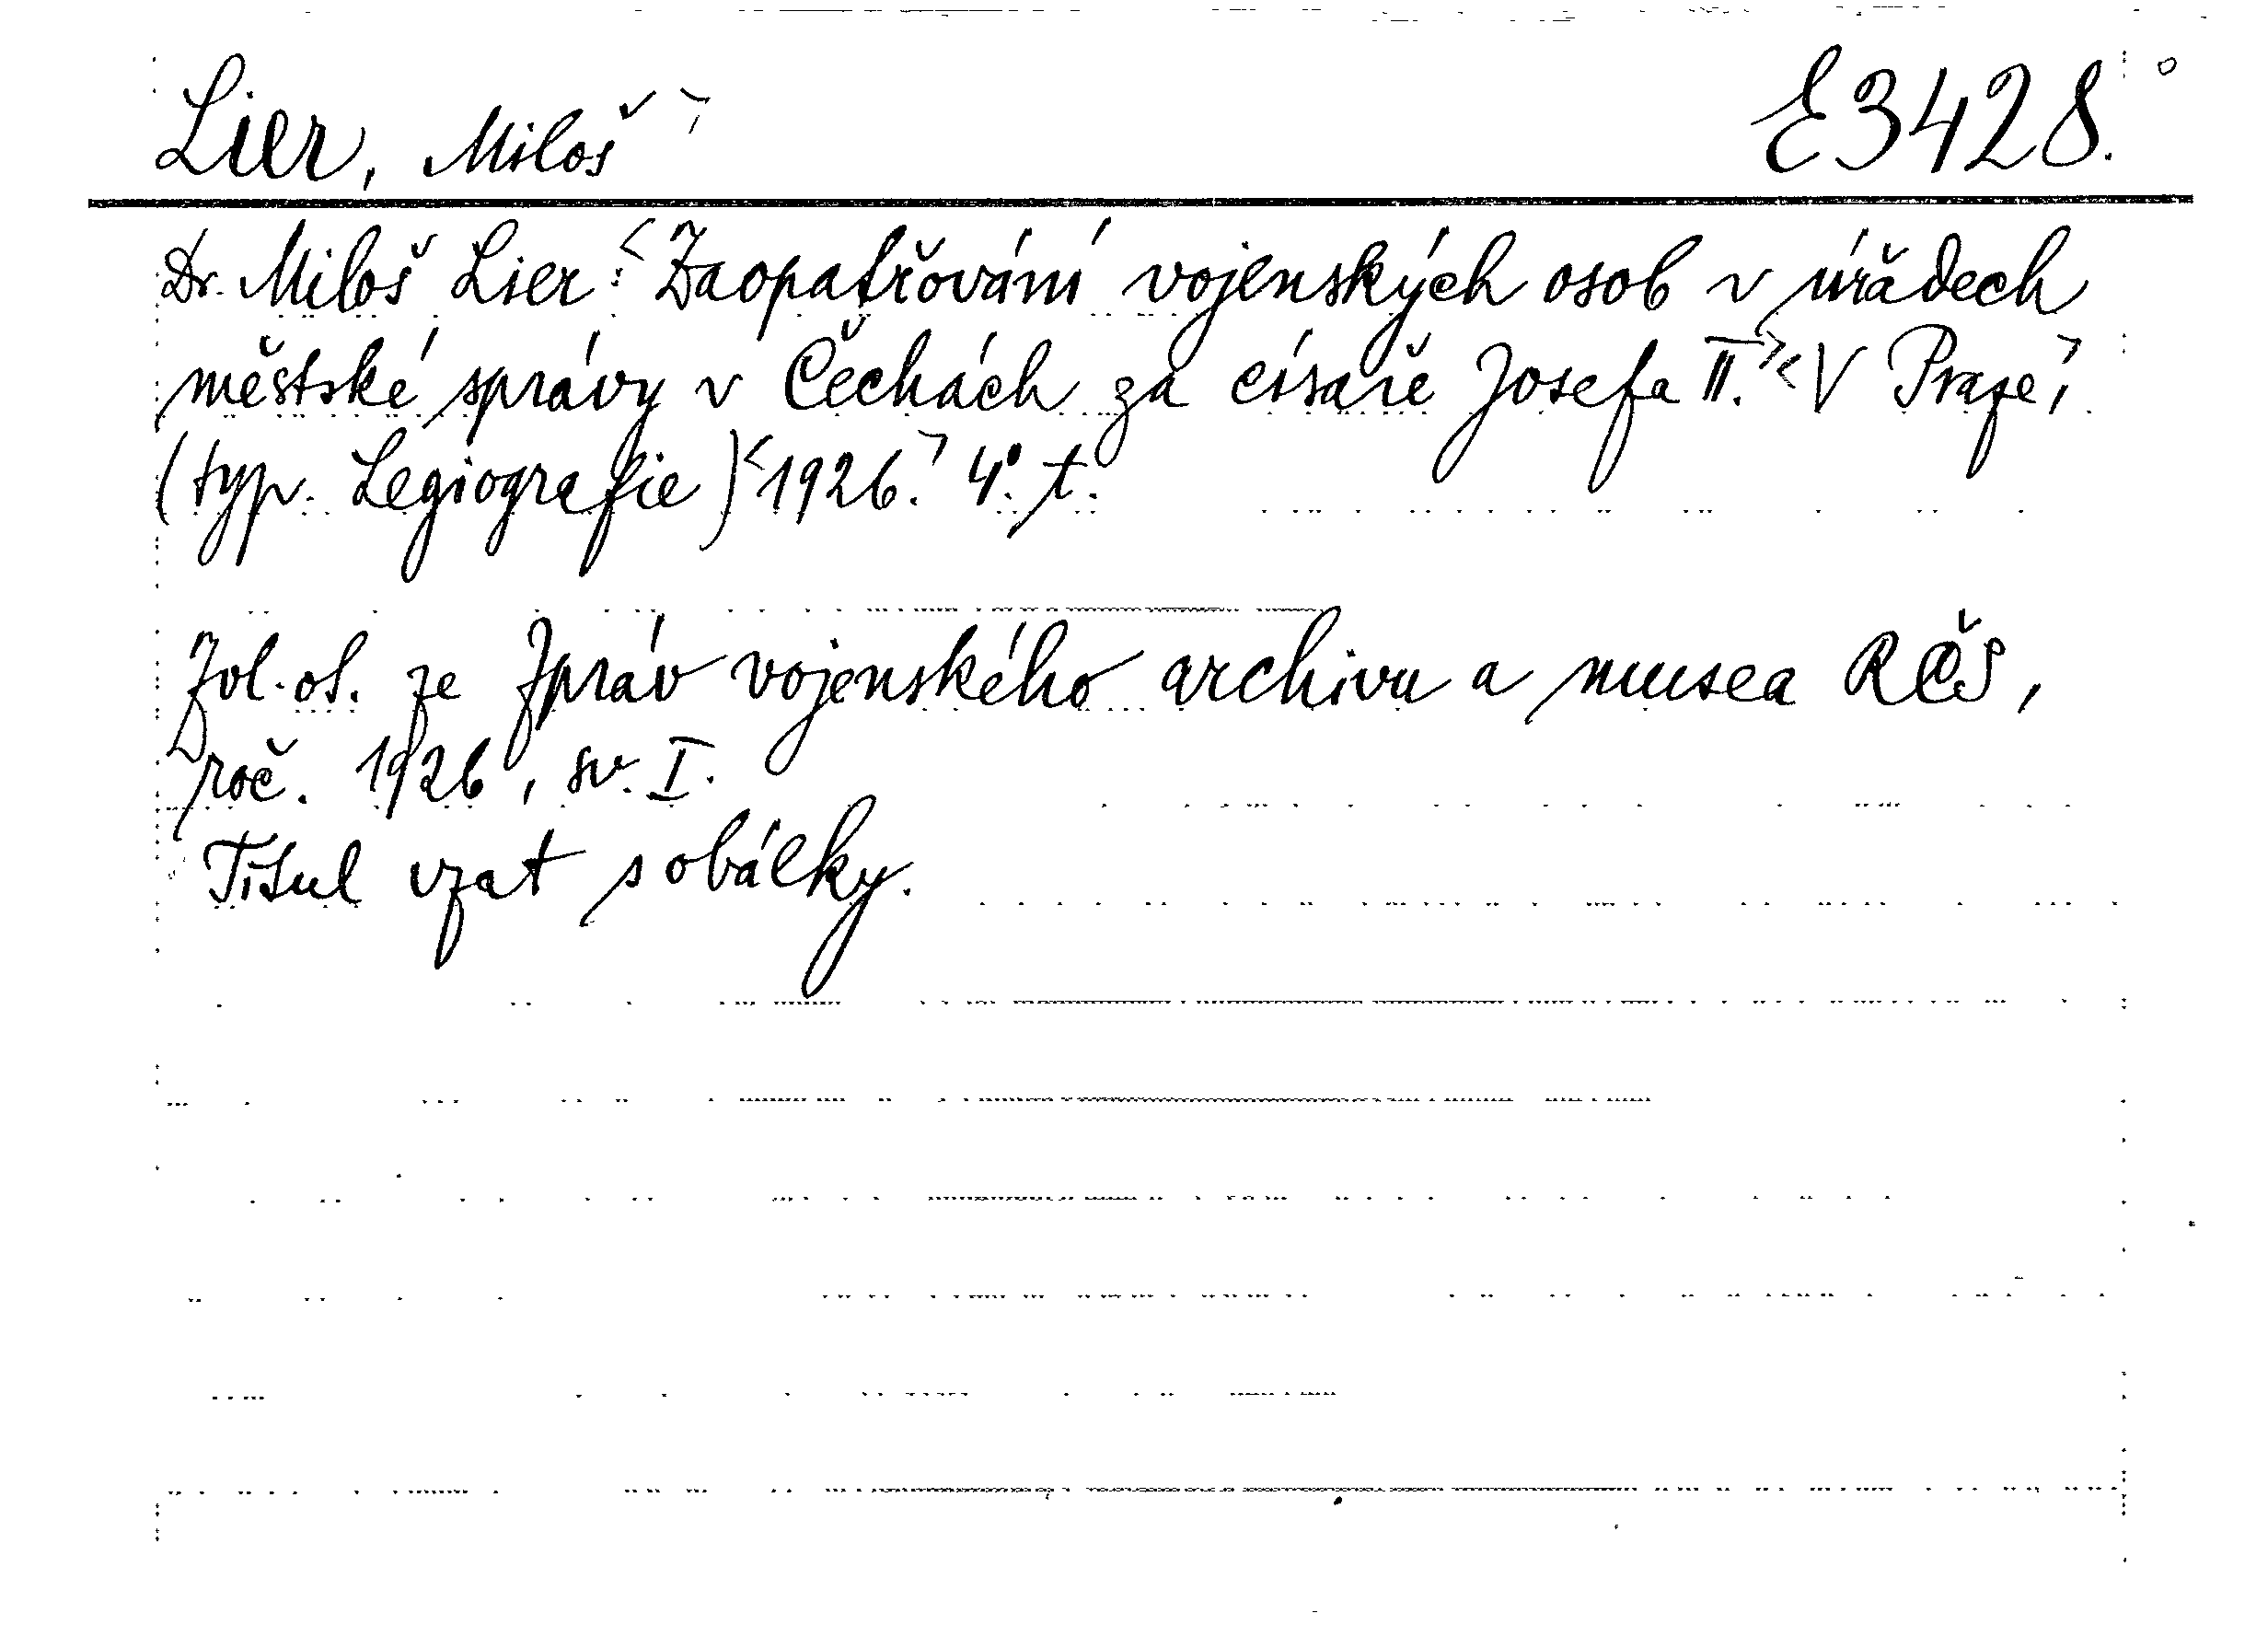 Lier, Miloš
E 3428.
Dr. Miloš Lier: Zaopatřování vojenských osob v úřadech
městské správy v Čechách za císaře Josefa II. V Praze,
(typ. Legiografie) 1926. 4°. t.
Zvl. ot. ze Zpráv vojenského archivu a musea RČS,
roč. 1926, sv. I.
Titul vzat s obálky.